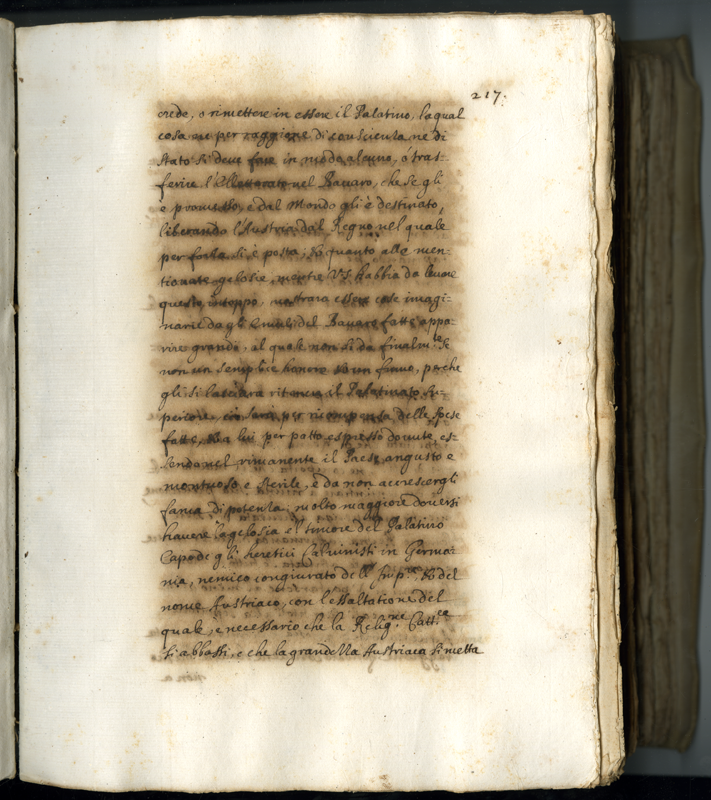 217.
crede, o rimettere in essere il Palatino, la qual
cosa ne per raggione di conscienza ne di
stato si deve fare in modo alcuno, ó tras-
ferire l'Elettorato nel Bavaro, che se gli
è promesso, e dal Mondo gli è destinato,
liberando l'Austria dal Regno nel quale
per forza si è posta; quanto alle men-
tionate gelosie, mentre V.S. habbia da levare
questo intoppo, mostrara essere cose imagi-
narie da gl'Emuli del Bavaro fatte appa-
rire grandi, al quale non si da finalm.te se
non un semplice honore un fumo, perche
gli si lasciara ritenere il Palatinato su-
periore, ciò sarà per ricompensa delle spese
fatte, a lui per patto espresso dovute, es-
sendo nel rimanente il Paese angusto e
montuoso e sterile, e da non accrescergli
fama di potenza; molto maggiore doversi
havere la gelosia e'l timore del Palatino
Capo de gli heretici Calvinisti in Germa-
nia, nemico congiurato dell' Imp.re, del
nome Austriaco, con l'essaltatione del
quale, e necessario che la Relig.ne Catt.ca
si abbassi, e che la grandezza Austriaca si metta
non a